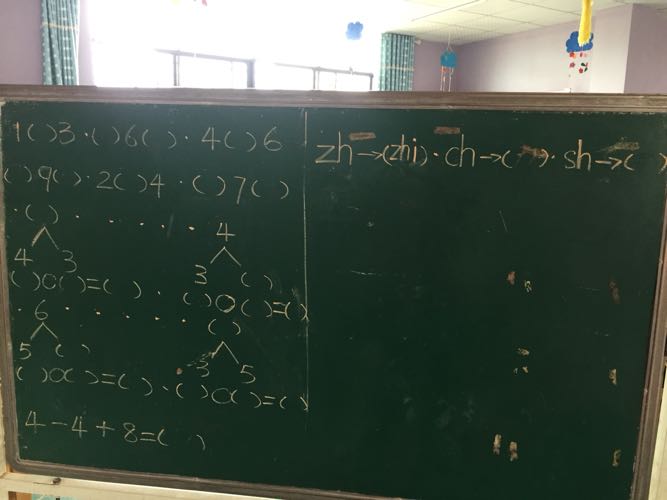 1( )3·( )6( )·4( )6
( )9( )·2( )4·( )7( )
·( )······4
4 3 3 ( )
( )○( )=( )·( )○( )=( )
·6·····( )
5 ( ) 3 5
( )○( )=( )·( )○( )=( )
4-4+8=( )
zh→(zhi)·ch→( )·sh→( )